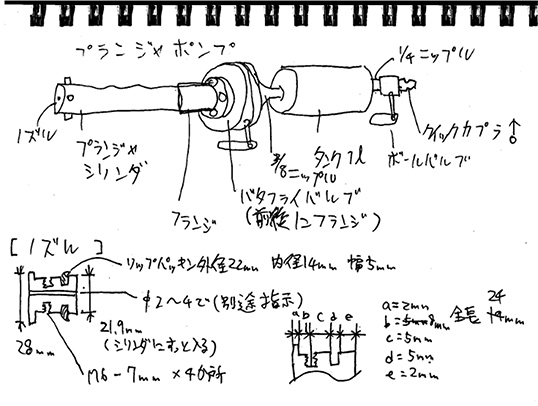 プランジャポンプ
1/4ニップル
ノズル
プランジャ
シリンダ
フランジ
3/8ニップル
タンク1L
クイックカプラ♂
ボールバルブ
バタフライバルブ
(前後にフランジ)
[ノズル]
リップパッキン外径22mm 内径14mm 幅5mm
φ2~4で(別途指示)
21.9mm
(シリンダにすっと入る)
28mm
M6-7mm ×4カ所
a b c d e
a=2mm
b=8mm
c=5mm
d=5mm
e=2mm
全長 24mm